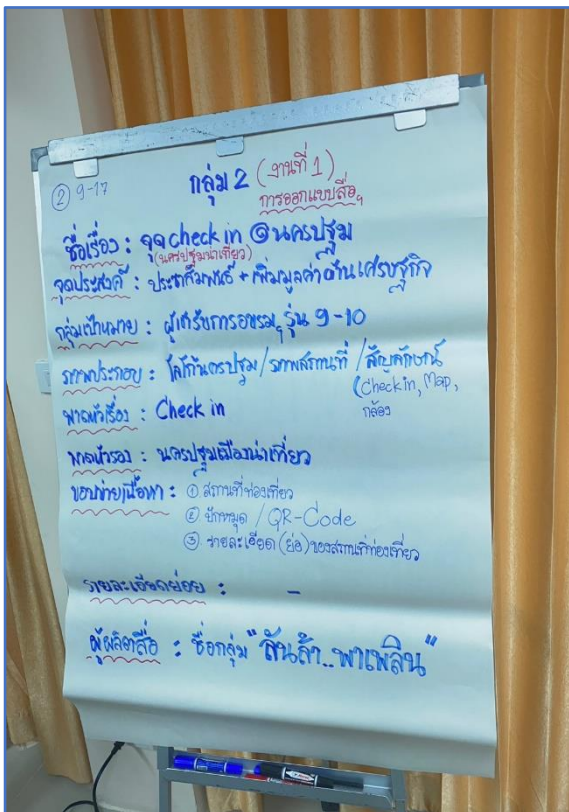 ② 9-17
กลุ่ม 2 (งานที่ 1)
การออกแบบสื่อฯ
ชื่อเรื่อง : จุด check in @นครปฐม
(นครปฐมน่าเที่ยว)
จุดประสงค์ : ประชาสัมพันธ์ + เพิ่มมูลค่าด้านเศรษฐกิจ
กลุ่มเป้าหมาย : ผู้เข้ารับการอบรมฯ รุ่น 9-10
ภาพประกอบ : โลโก้นครปฐม / ภาพสถานที่ / สัญลักษณ์
(Check in, Map,
กล้อง
พาดหัวเรื่อง : Check in
พาดหัวรอง : นครปฐมเมืองน่าเที่ยว
ขอบข่ายเนื้อหา : ① สถานที่ท่องเที่ยว
② ปักหมุด / QR-Code
③ รายละเอียด (ย่อ) ของสถานที่ท่องเที่ยว
รายละเอียดย่อย : -
ผู้ผลิตสื่อ : ชื่อกลุ่ม "ลันล้า..พาเพลิน"